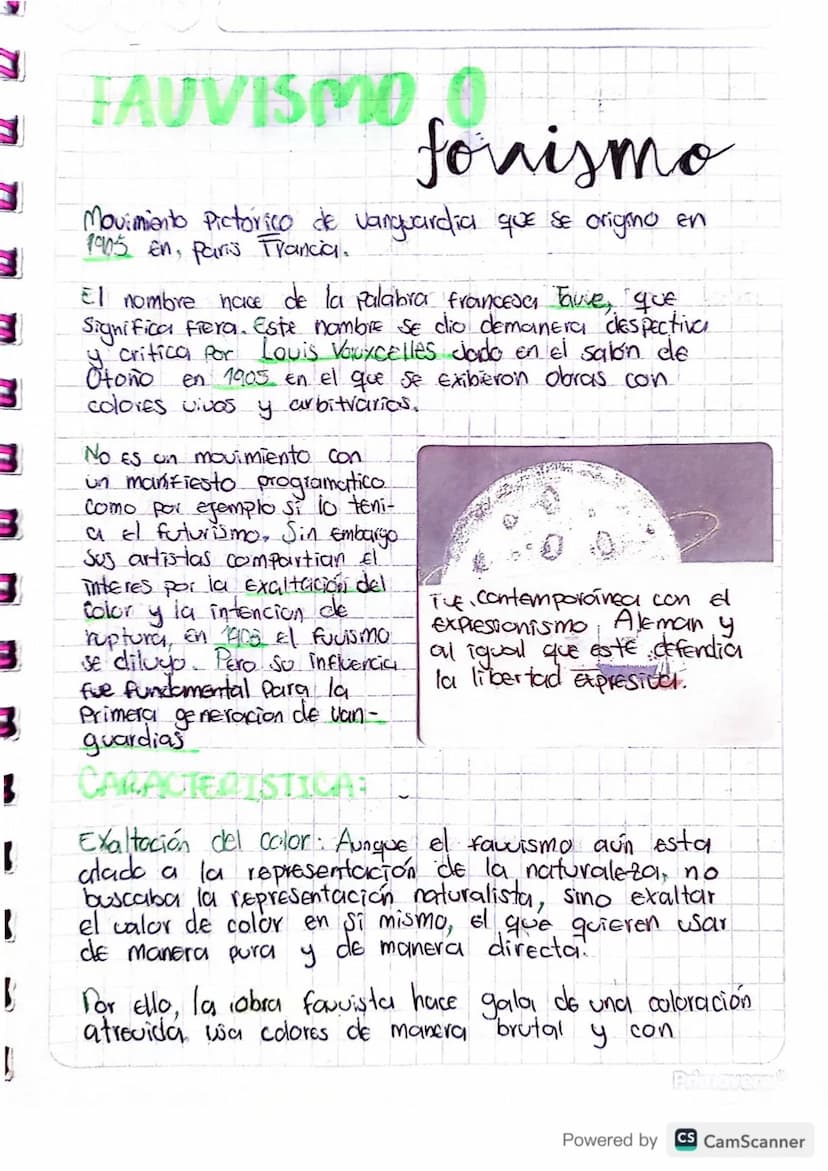 FAUVISMO O
fovismo
Movimiento Pictórico de vanguardia que se origino en
1905 en, paris Francia.
El nombre nace de la palabra francesa Fauve, que
Significa fiera. Este nombre se dio demanera despectiva
y critica por Louis Vauxcelles dado en el salón de
Otoño en 1905 en el que se exibieron obras con
colores vivos y arbitrarios.
No es un movimiento con
un manifiesto programatico
como por ejemplo si lo teni-
a el futurismo. Sin embargo
sus artistas compartian el
interes por la exaltación del
color y la intencion de
ruptura, en 1908 el fuvismo
se diluyo. Pero su influencia
fue fundamental para la
Primera generacion de van-
guardias
Fue contemporánea con el
expresionismo Aleman y
al igual que este defendia
la libertad expresiva.
CARACTERISTICA:
Exaltación del color: Aunque el fauvismo aún esta
atado a la representación de la naturaleza, no
buscaba la representación naturalista, sino exaltar
el valor de color en si mismo, el que quieren usar
de manera pura y de manera directa.
Por ello, la obra fauvista hace gala de una coloración
atrevida usa colores de manera brutal y con
Primavera
Powered by CS CamScanner